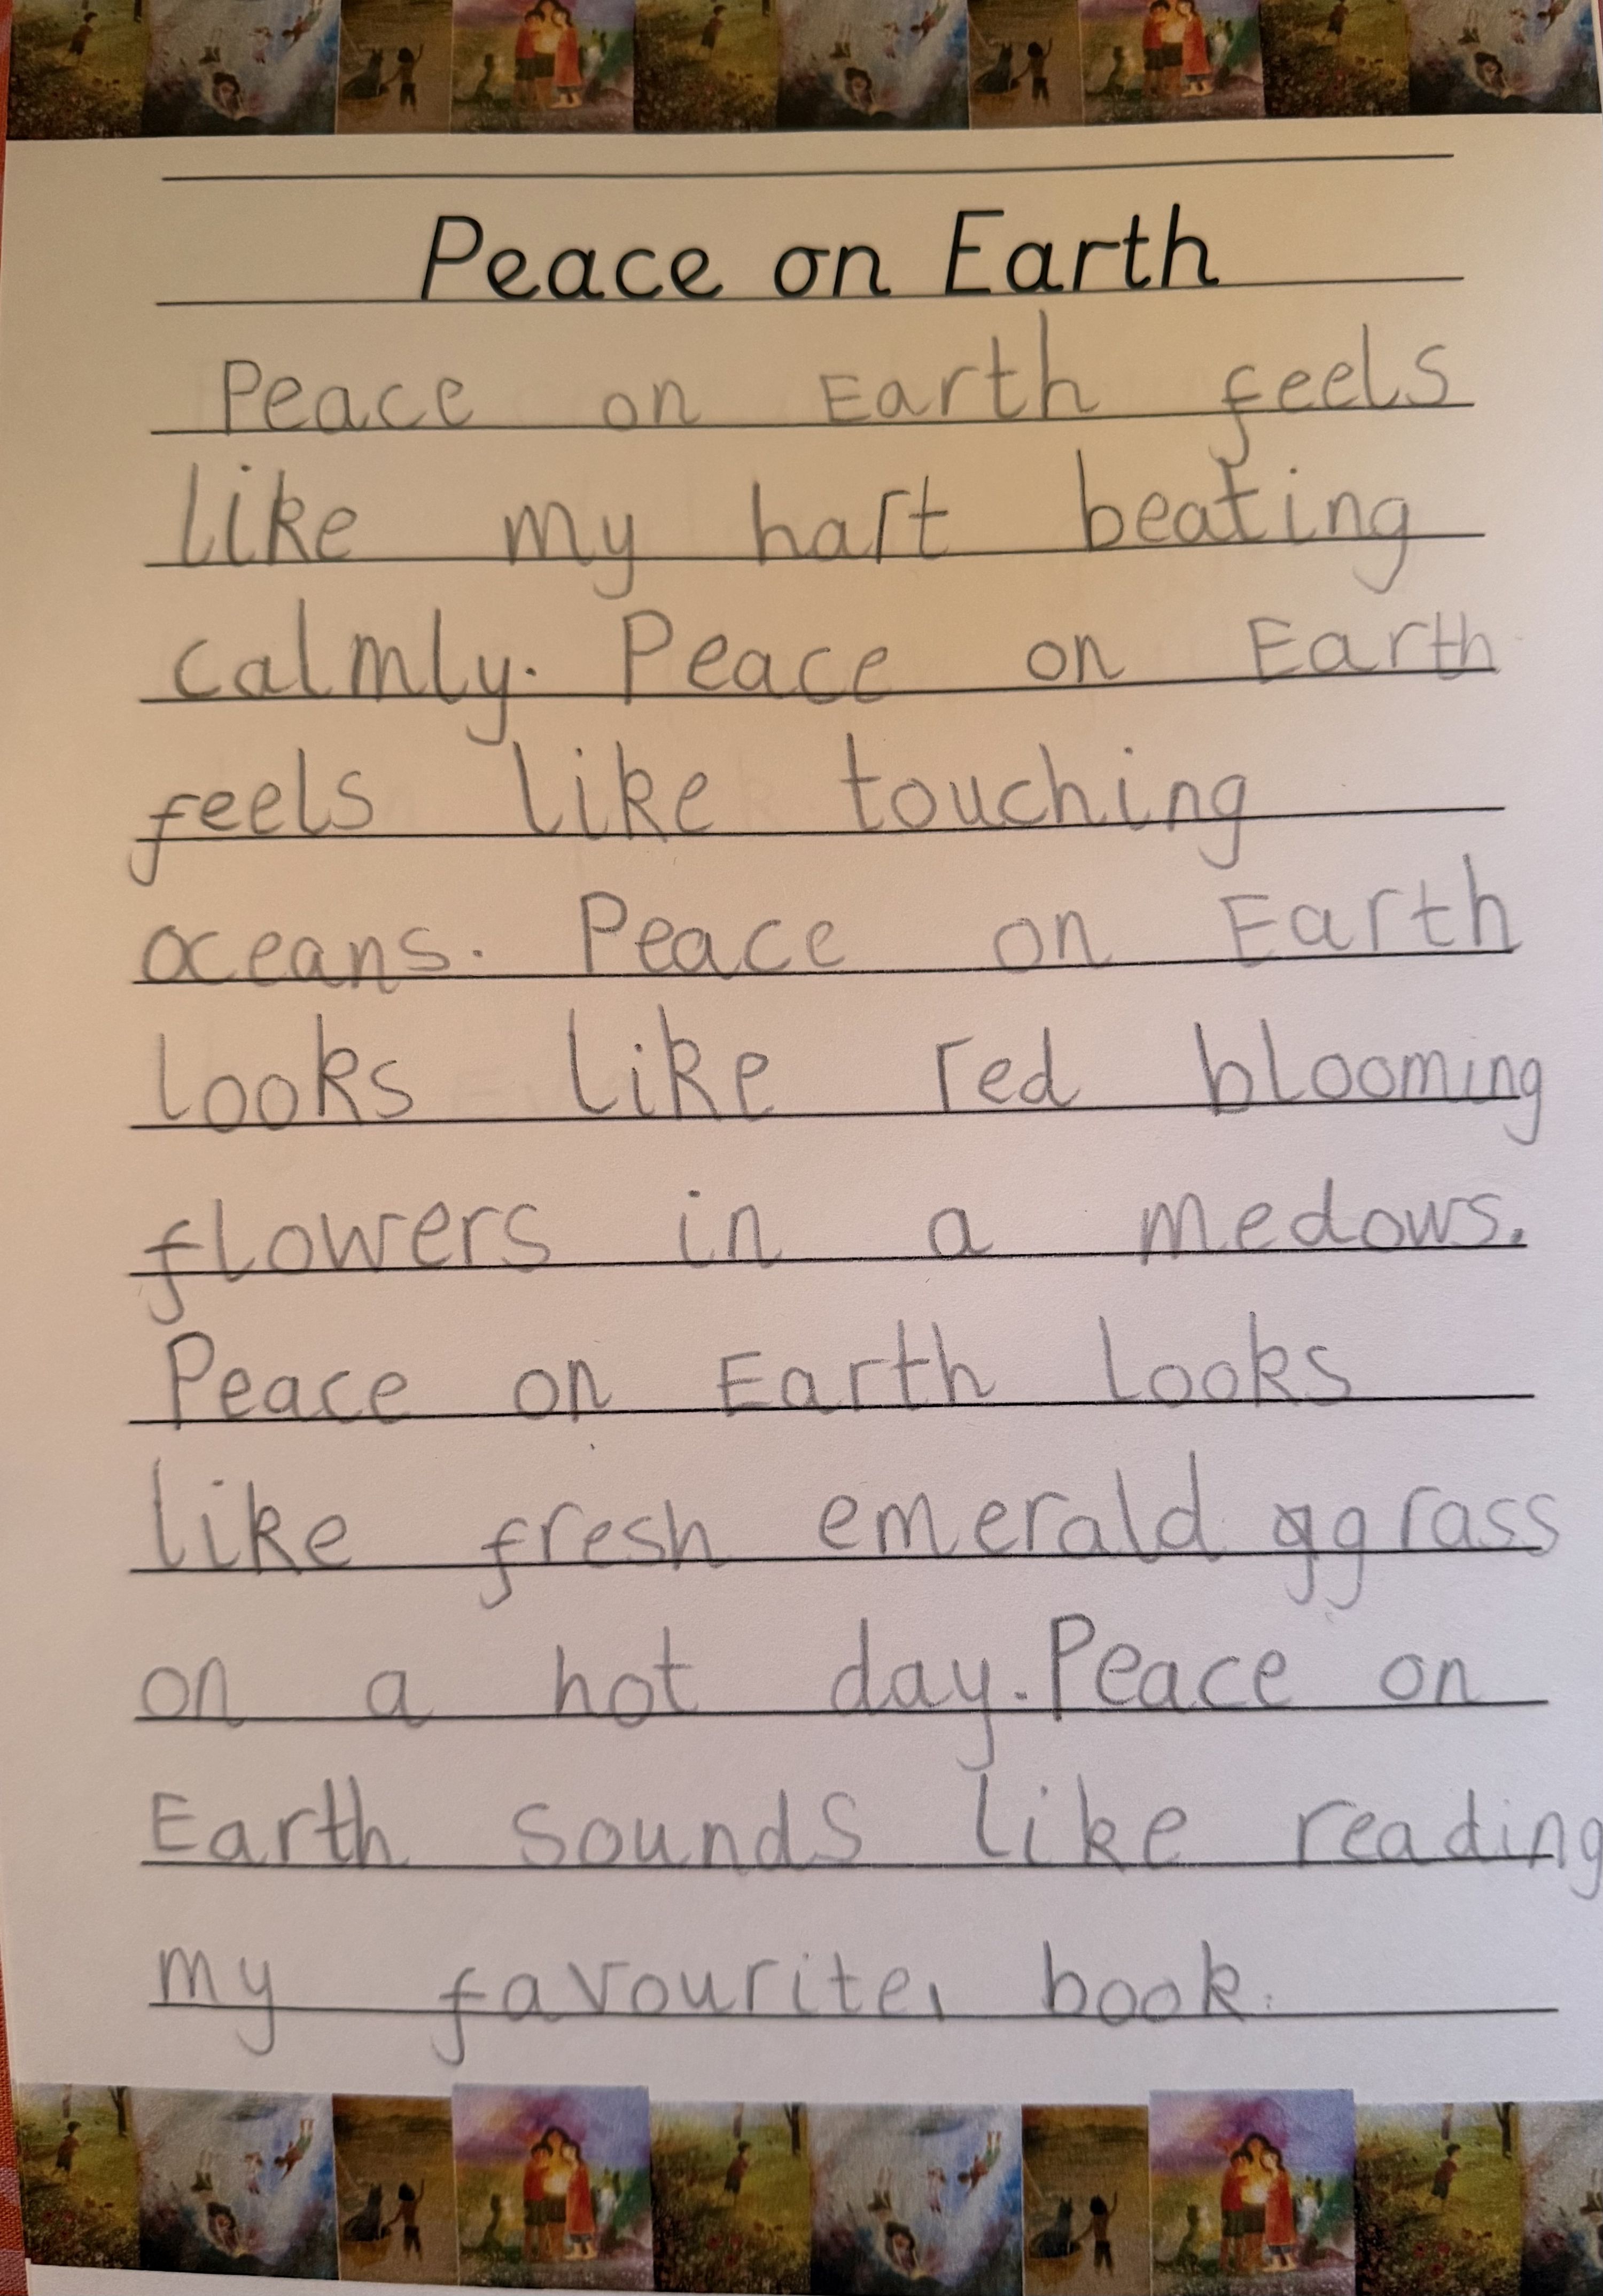 Peace on Earth
Peace on Earth feels
like my hart beating
calmly. Peace on Earth
feels like touching
oceans. Peace on Earth
looks like red blooming
flowers in a medows.
Peace on Earth looks
like fresh emerald ggrass
on a hot day. Peace on
Earth sounds like reading
my favourite, book.